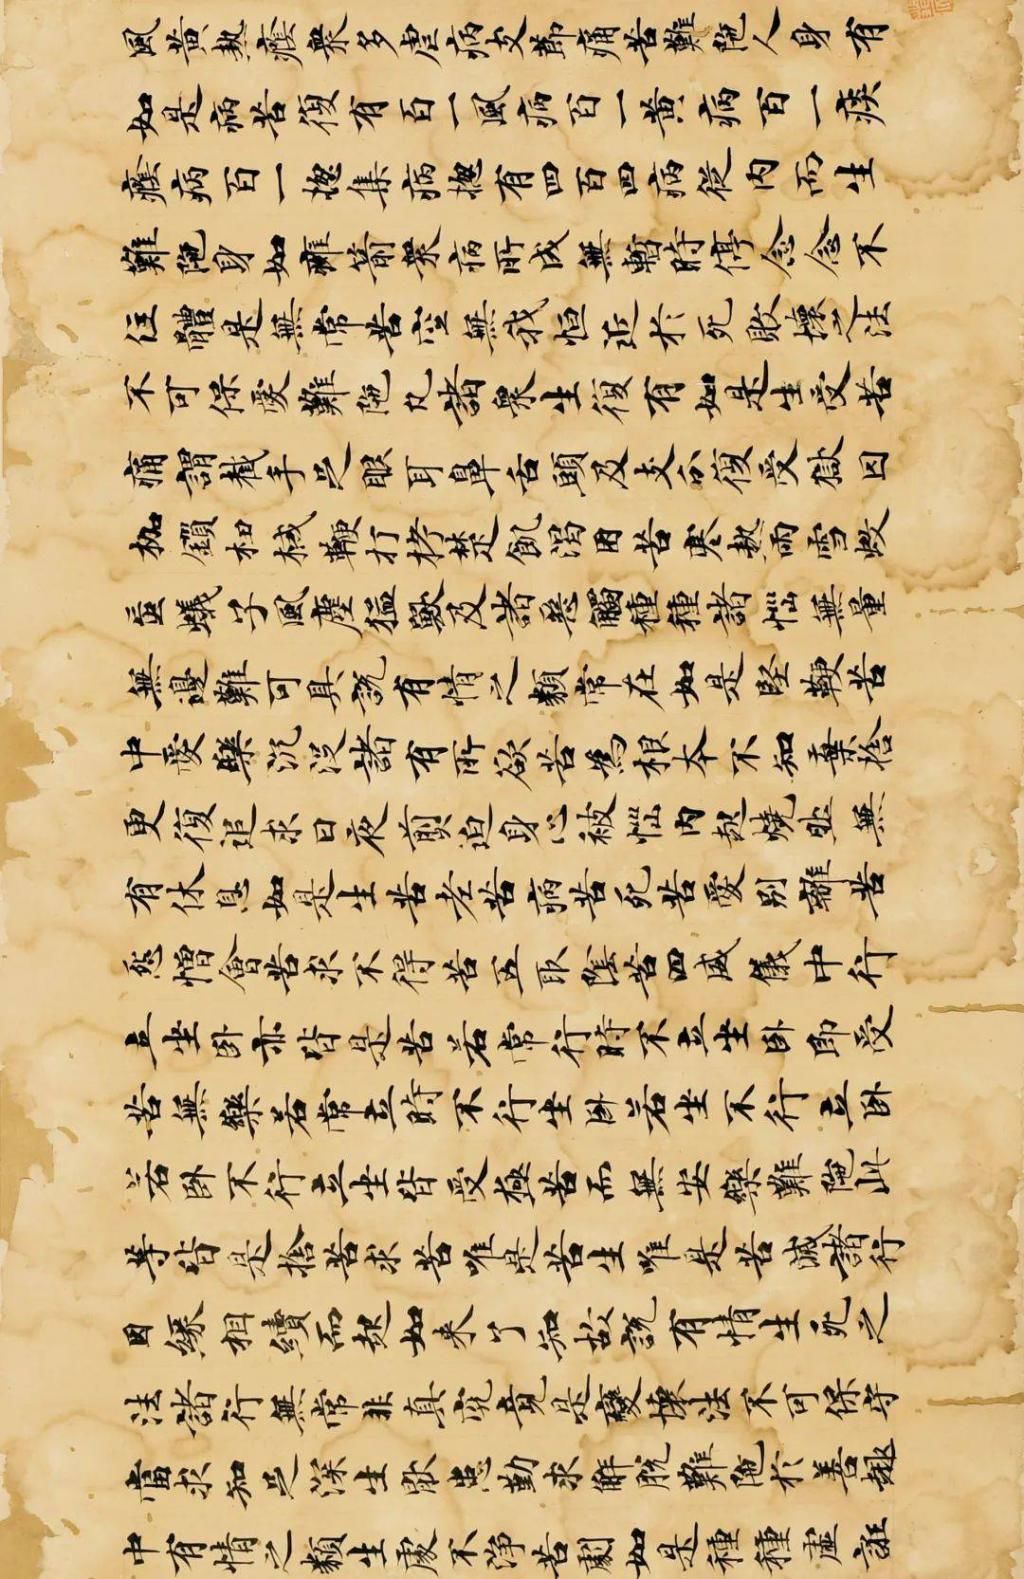 風黃熱癊衆多虐病支節痛苦難陁人身有
如是病苦復有百一風病百一黃病百一痰
癊病百一揔集病揔有四百四病從內而生
難陁身如癰箭衆病所成無暫時停念念不
住體是無常苦空無我恒近於死敗壞之法
不可保愛難陁凡諸衆生復有如是生受苦
痛謂截手足眼耳鼻舌頭及支分復受獄囚
枷鎖杻械鞭打栲楚飢渴困苦寒熱雨雪蚊
䖟蟻子風塵猛獸及諸惡觸種種諸惱無量
無邊難可具說有情之類常在如是堅鞕苦
中愛樂沉沒諸有所欲苦爲根本不知棄捨
更復追求日夜煎迫身心被惱內起燒然無
有休息如是生苦老苦病苦死苦愛別離苦
怨憎會苦求不得苦五取陰苦四威儀中行
立坐臥亦皆是苦若常行時不立坐臥即受
苦無樂若常立時不行坐臥若坐不行立臥
若臥不行立坐皆受極苦而無安樂難陁此
等皆是捨苦求苦唯是苦生唯是苦滅諸行
因緣相續而起如來了知故說有情生死之
法諸行無常非真究竟是變壞法不可保守
當求知足深生厭患勤求解脫難陁於善趣
中有情之類生處不淨苦劇如是種種虛誑